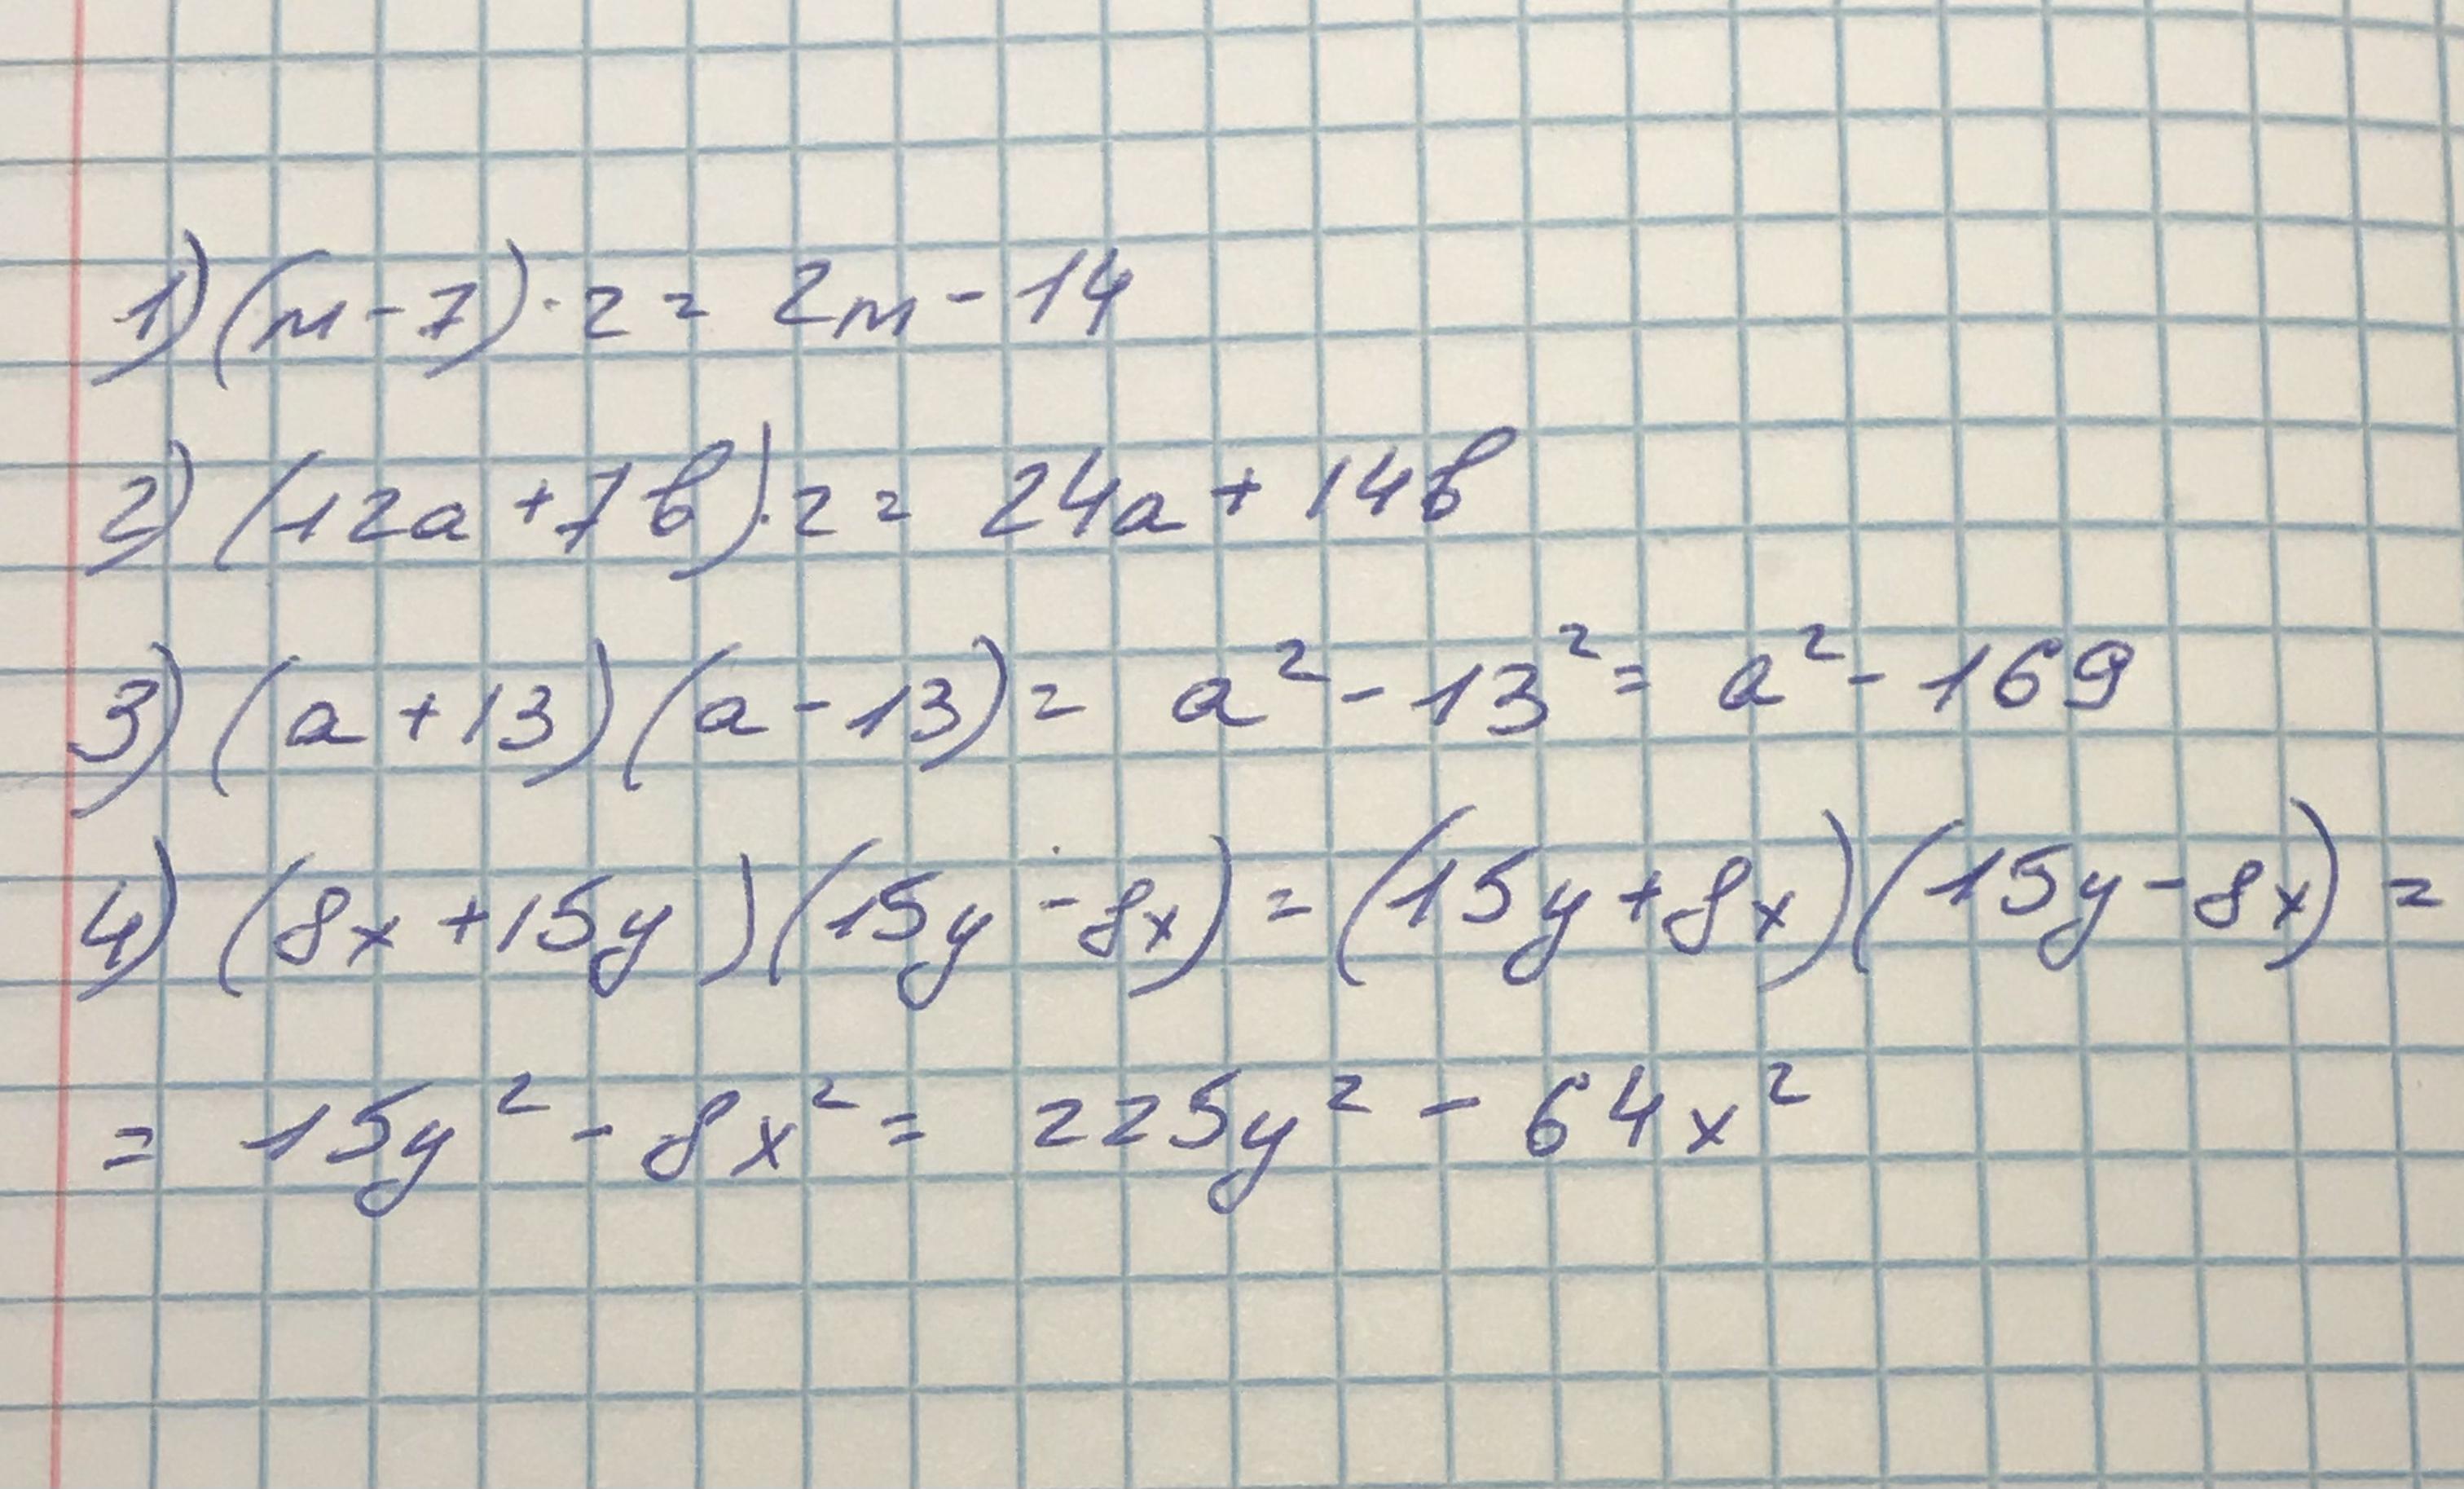 1) (m - 7) · 2 = 2m - 14
2) (12a + 7b) · 2 = 24a + 14b
3) (a + 13)(a - 13) = a² - 13² = a² - 169
4) (8x + 15y)(15y - 8x) = (15y + 8x)(15y - 8x) =
= 15y² - 8x² = 225y² - 64x²